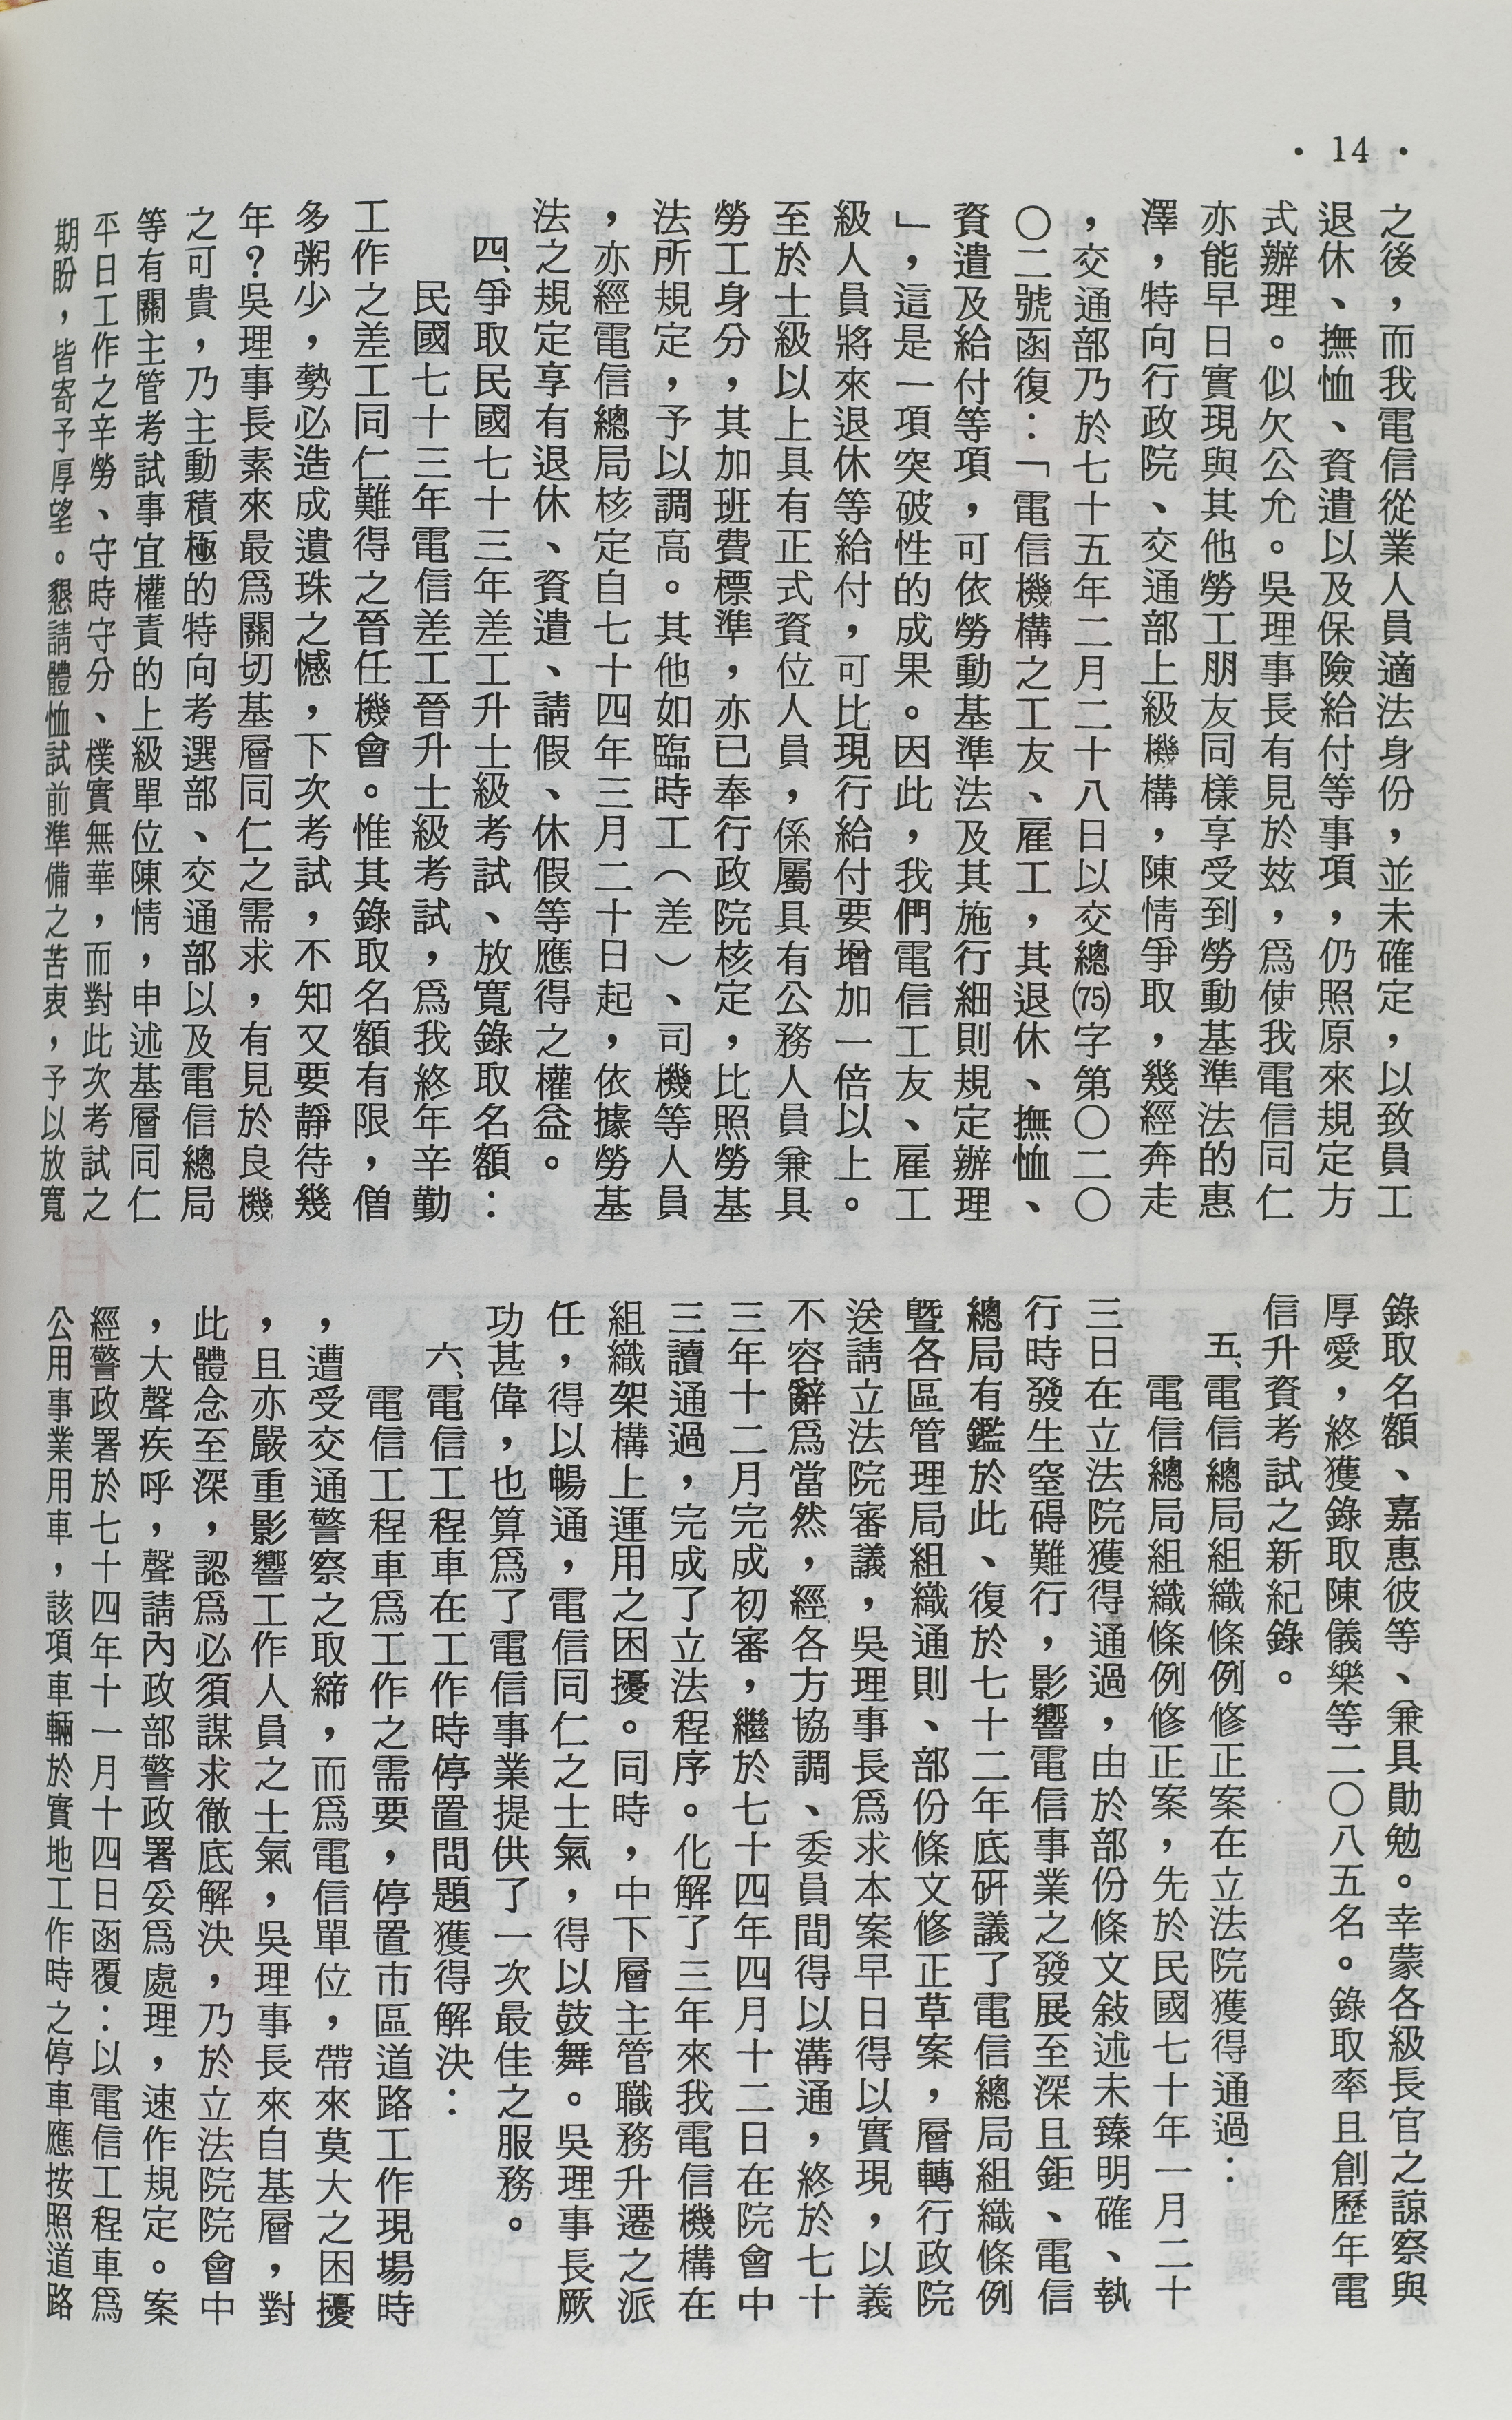 · 14 ·
之後，而我電信從業人員適法身份，並未確定，以致員工
退休、撫恤、資遣以及保險給付等事項，仍照原來規定方
式辦理。似欠公允。吳理事長有見於茲，爲使我電信同仁
亦能早日實現與其他勞工朋友同樣享受到勞動基準法的惠
澤，特向行政院、交通部上級機構，陳情爭取，幾經奔走
，交通部乃於七十五年二月二十八日以交總(75)字第〇二〇
〇二號函復：「電信機構之工友、雇工，其退休、撫恤、
資遣及給付等項，可依勞動基準法及其施行細則規定辦理
」，這是一項突破性的成果。因此，我們電信工友、雇工
級人員將來退休等給付，可比現行給付要增加一倍以上。
至於士級以上具有正式資位人員，係屬具有公務人員兼具
勞工身分，其加班費標準，亦已奉行政院核定，比照勞基
法所規定，予以調高。其他如臨時工（差）、司機等人員
，亦經電信總局核定自七十四年三月二十日起，依據勞基
法之規定享有退休、資遣、請假、休假等應得之權益。
四、爭取民國七十三年差工升士級考試、放寬錄取名額：
民國七十三年電信差工晉升士級考試，爲我終年辛勤
工作之差工同仁難得之晉任機會。惟其錄取名額有限，僧
多粥少，勢必造成遺珠之憾，下次考試，不知又要靜待幾
年？吳理事長素來最爲關切基層同仁之需求，有見於良機
之可貴，乃主動積極的特向考選部、交通部以及電信總局
等有關主管考試事宜權責的上級單位陳情，申述基層同仁
平日工作之辛勞、守時守分、樸實無華，而對此次考試之
期盼，皆寄予厚望。懇請體恤試前準備之苦衷，予以放寬
錄取名額、嘉惠彼等、兼具勛勉。幸蒙各級長官之諒察與
厚愛，終獲錄取陳儀樂等二〇八五名。錄取率且創歷年電
信升資考試之新紀錄。
五、電信總局組織條例修正案在立法院獲得通過：
電信總局組織條例修正案，先於民國七十年一月二十
三日在立法院獲得通過，由於部份條文敍述未臻明確、執
行時發生窒碍難行，影響電信事業之發展至深且鉅、電信
總局有鑑於此、復於七十二年底研議了電信總局組織條例
暨各區管理局組織通則、部份條文修正草案，層轉行政院
送請立法院審議，吳理事長爲求本案早日得以實現，以義
不容辭爲當然，經各方協調、委員間得以溝通，終於七十
三年十二月完成初審，繼於七十四年四月十二日在院會中
三讀通過，完成了立法程序。化解了三年來我電信機構在
組織架構上運用之困擾。同時，中下層主管職務升遷之派
任，得以暢通，電信同仁之士氣，得以鼓舞。吳理事長厥
功甚偉，也算爲了電信事業提供了一次最佳之服務。
六、電信工程車在工作時停置問題獲得解決：
電信工程車爲工作之需要，停置市區道路工作現場時
，遭受交通警察之取締，而爲電信單位，帶來莫大之困擾
，且亦嚴重影響工作人員之士氣，吳理事長來自基層，對
此體念至深，認爲必須謀求徹底解決，乃於立法院院會中
，大聲疾呼，聲請內政部警政署妥爲處理，速作規定。案
經警政署於七十四年十一月十四日函覆：以電信工程車爲
公用事業用車，該項車輛於實地工作時之停車應按照道路